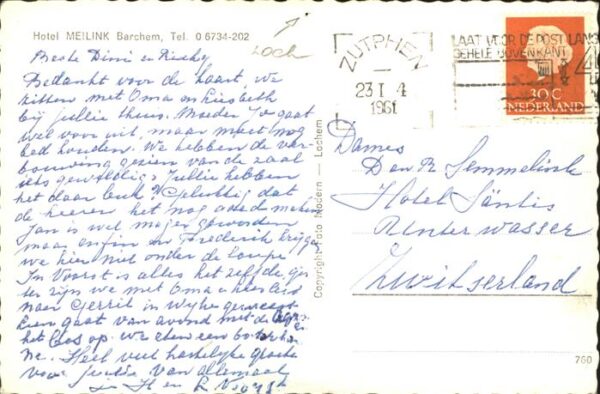 Hotel MEILINK Barchem, Tel. 0 6734-202
Loch
ZUTPHEN
23 I 4
1961
LAAT VOOR DE POST LANGS
GEHELE BOVENKANT
4
30 C
NEDERLAND
Beste Dini en
Bedankt voor de kaart, we
zitten met Oma en Liesbeth
bij jullie thuis. Moeder gaat
wel vooruit, maar moet nog
bed houden. We hebben de ver-
bouwing gezien van de zaal
iets geweldigs. Jullie hebben
het daar leuk gelukkig dat
de heeren het nog
Jan is wel mager geworden
maar enfin Frederik krijgen
we hier niet onder de
In Voorst is alles het zelfde, gis-
ter zijn we met Oma
naar Gerrit in Wijhe geweest
gaat van avond met de
het los op. we eten een boterham
Heel veel hartelijke groeten
voor jullie van allemaal
H en Voorst
Dames
D en R Semmelink
Hotel Säntis
Unterwasser
Zwitserland
Copyright Foto Modern - Lochem
760